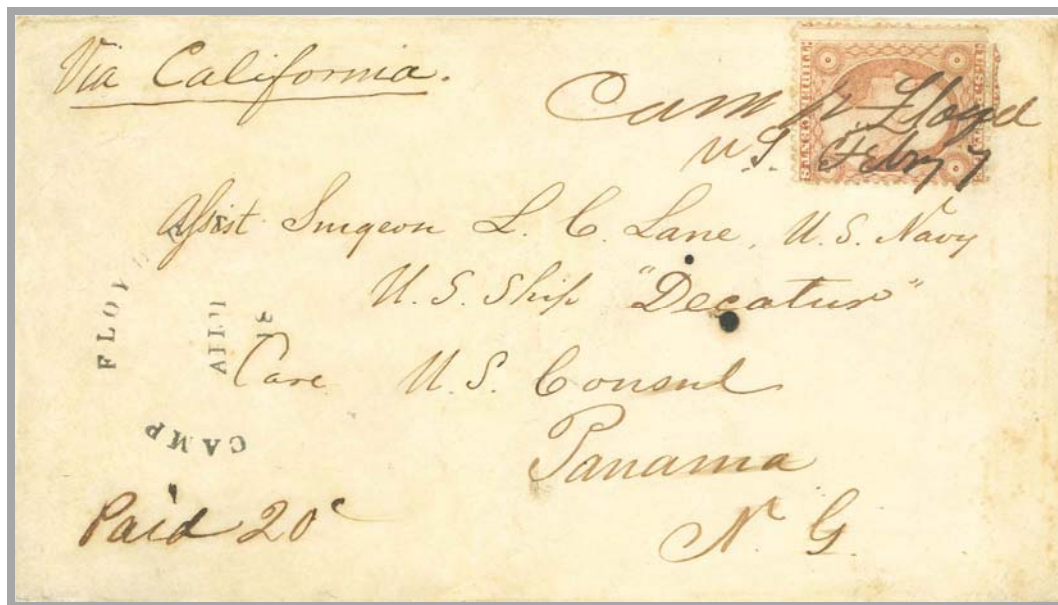 Via California.
Camp Floyd
Febry 7
Assist Surgeon L. C. Lane, U.S. Navy
U.S. Ship "Decatur"
Care U.S. Consul
Panama
N. G.
Paid 20c
CAMP FLOY
18
THREE CENTS